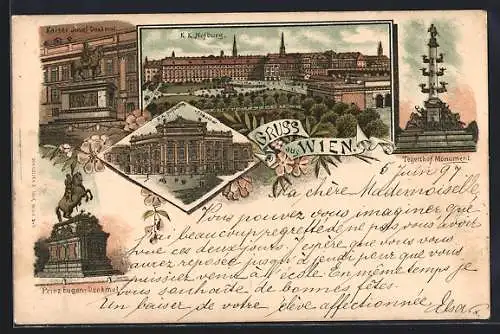 Kaiser Josef-Denkmal
K. K. Hofburg.
GRUSS
aus WIEN.
Tegetthof Monument
Prinz Eugen-Denkmal
5 Juin 97
Ma chère Mademoiselle
Vous pouvez vous imaginer que
j'ai beaucoup regretté de ne pas vous avoir
vue ces deux jours. J'espère que vous vous
aurez reposée jusqu'à jeudi pour que vous
puissiez venir à l'école En même temps je
vous souhaite de bonnes fêtes.
Un baiser de votre élève affectionnée Elsa